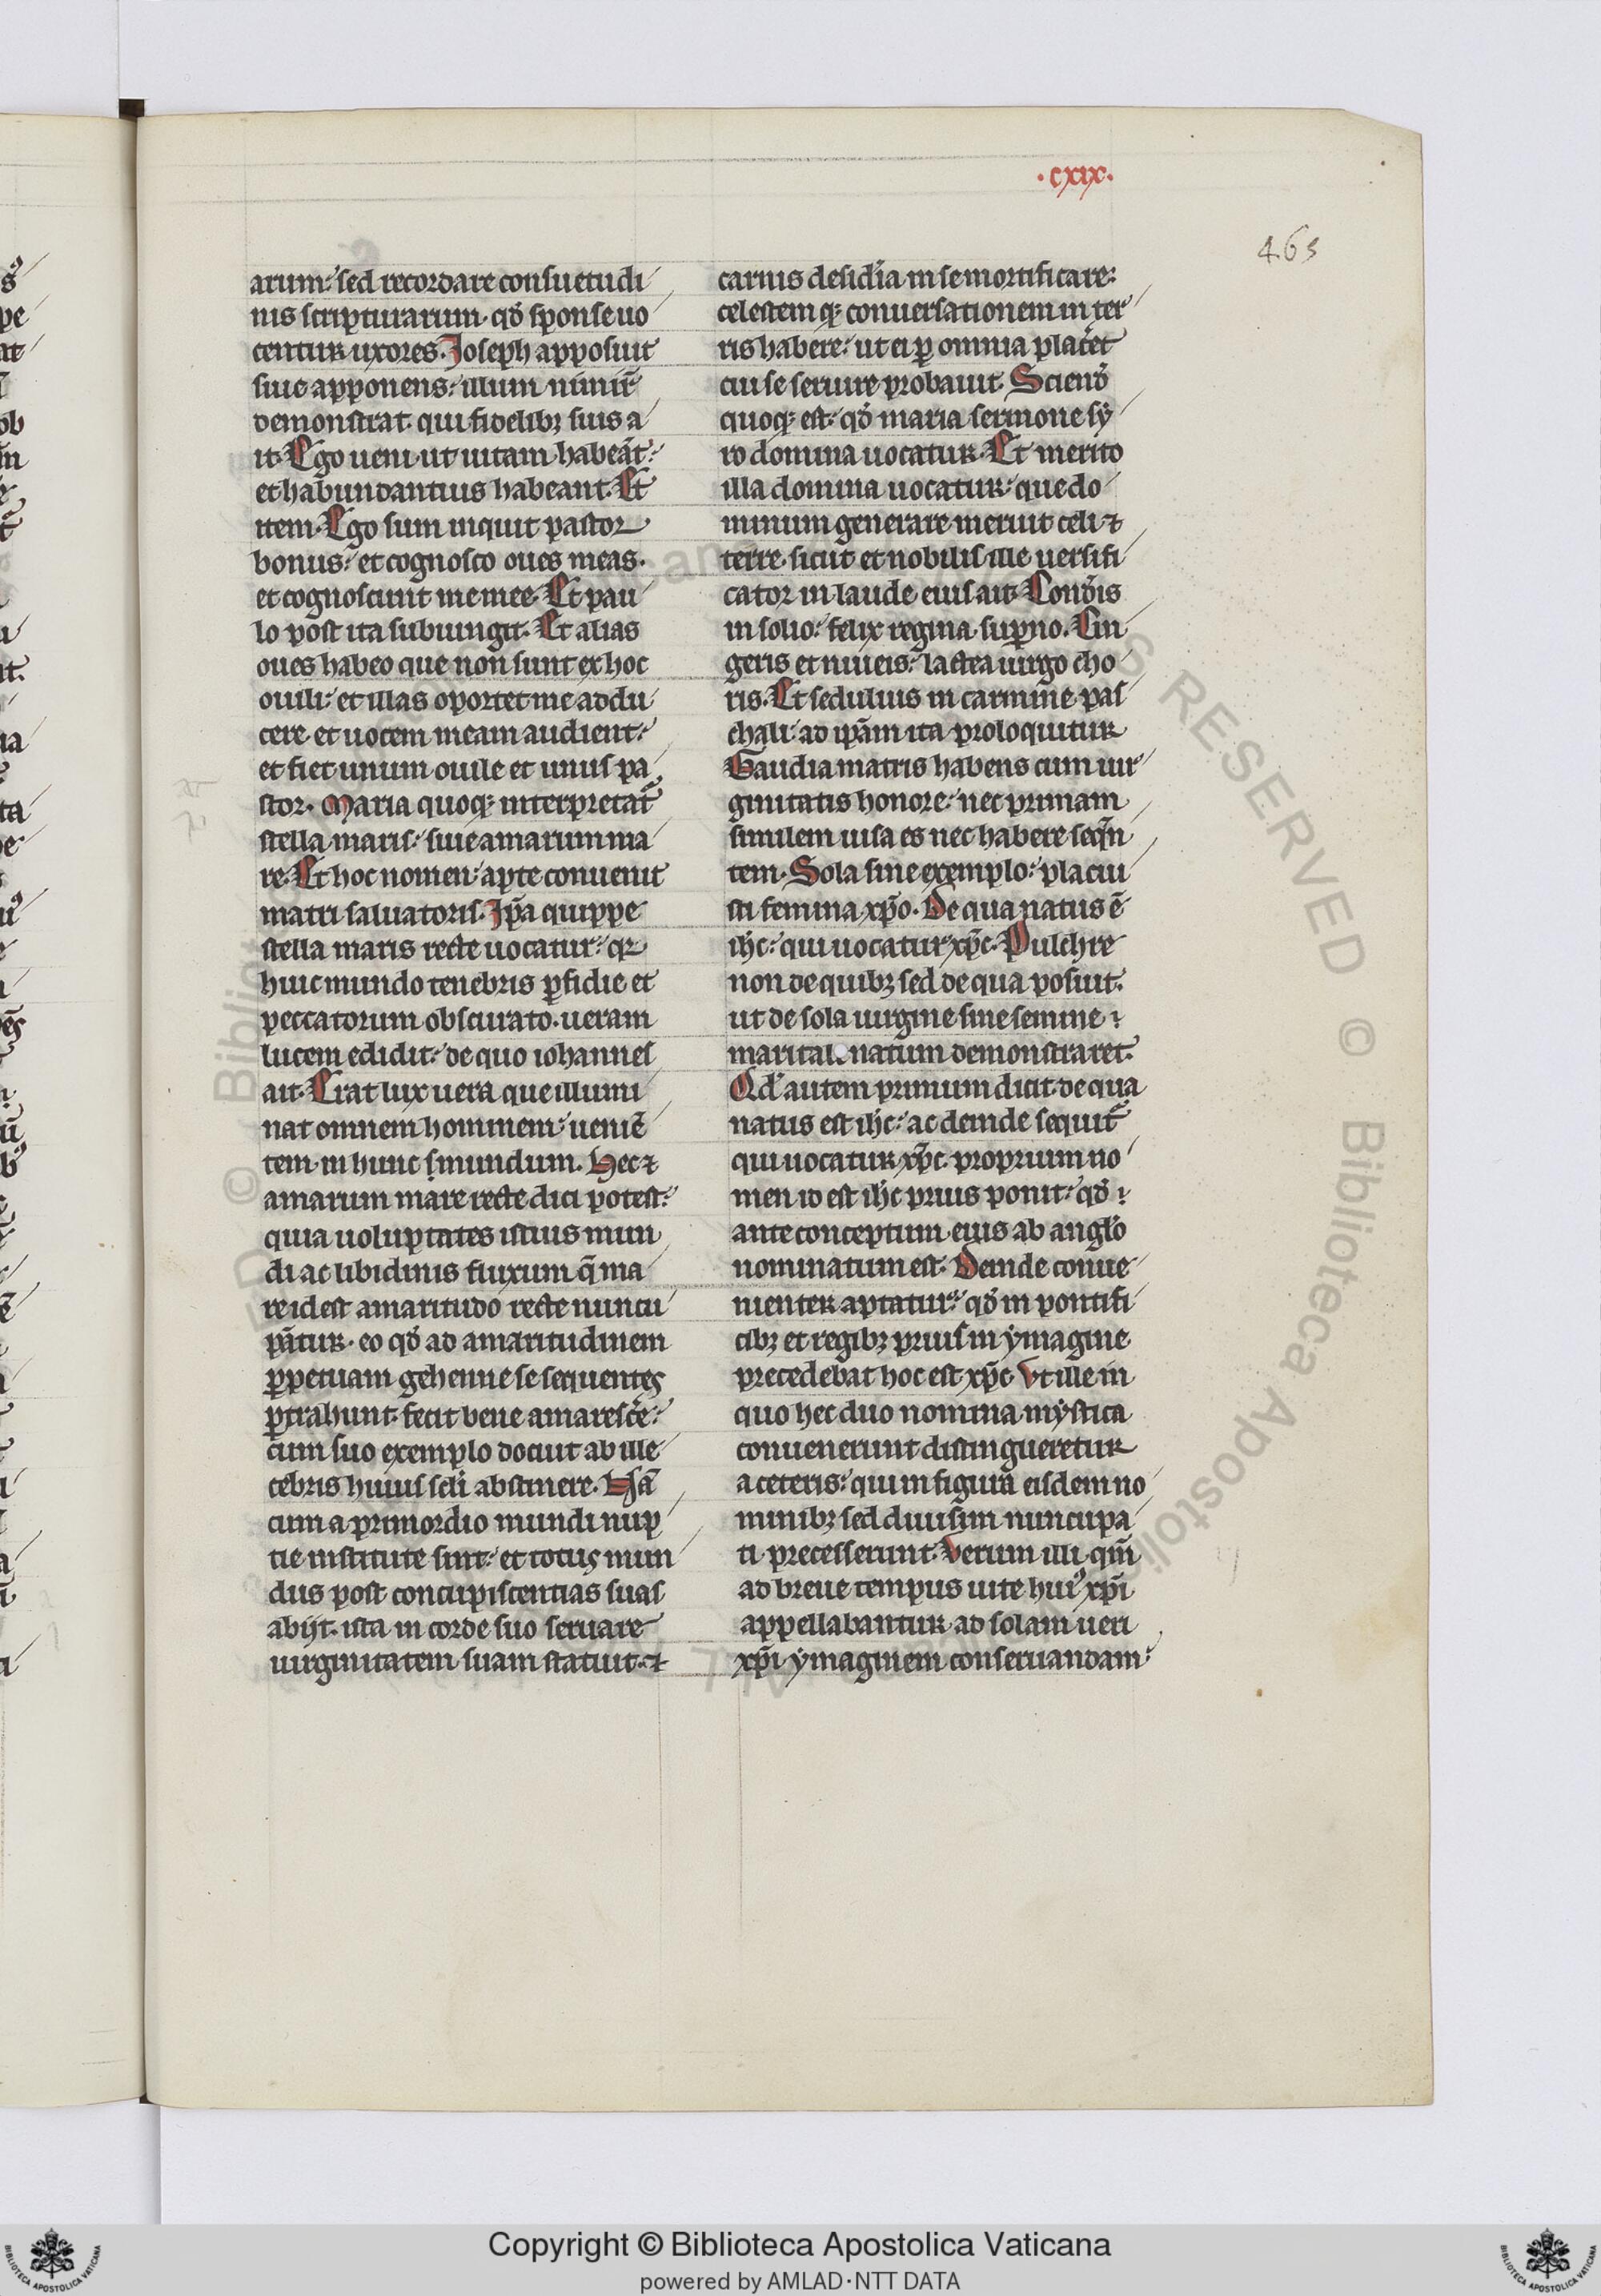 ·cxix·
463
arum: sed recordare consuetudi
nis scripturarum· qd̓ sponse uo
centur uxores. Joseph apposuit
siue apponens: illum nimir̄
demonstrat· qui fidelibꝫ suis a
it· Ego ueni ut uitam habeāt:
et habundantius habeant. Et
item· Ego sum inquit pastor
bonus: et cognosco oues meas·
et cognoscunt me mee· Et pau
lo post ita subiungit· Et alias
oues habeo que non sunt ex hoc
ouili: et illas oportet me addu
cere et uocem meam audient:
et fiet unum ouile et unus pa
stor· Maria quoqꝫ interpretat᷑
stella maris: siue amarum ma
re· Et hoc nomen: apte conuenit
matri saluatoris. Ip̄a quippe
stella maris recte uocatur: qꝛ
huic mundo tenebris ꝑfidie et
peccatorum obscurato· ueram
lucem edidit: de quo iohannes
ait· Erat lux uera que illumi
nat omnem hominem: ueniē
tem in hunc mundum. Hec ⁊
amarum mare recte dici potest:
quia uoluptates istius mun
di ac libidinis fluxum q̄ ma
re idest amaritudo recte nuncu
pāt᷑ur· eo qd̓ ad amaritudinem
ꝑpetuam gehenne se sequentes
ꝑtrahunt· fecit bene amarescͤe:
cum suo exemplo docuit ab ille
cebris huius scl̓i abstinere. Hā
cum a primordio mundi nup
tie institute sint: et totus mun
dus post concupiscentias suas
abijt· ista in corde suo seruare
uirginitatem suam statuit· ⁊
carnis desid̓ia in se mortificare:
celestem qꝫ conuersationem in ter
ris habere: ut ei ꝑ omnia plac̓et
cui se seruire probauit. Sciend̓
quoqꝫ est· qd̓ maria sermone sẏ
ro domina uocatur· Et merito
illa domina uocatur: que do
minum generare meruit celi ⁊
terre· sicut et nobilis ille uersifi
cator in laude eius ait· Cond̓is
in solio: felix regina suꝑno. Cin
geris et niueis: lactea uirgo cho
ris. Et sedulius in carmine pas
chali: ad ip̄am ita proloquitur
Gaudia matris habens cum uir
ginitatis honore: nec primam
similem uisa es nec habere seqn̄
tem· Sola sine exemplo: placui
sti femina xp̄o. De qua natus ē
ih̄c: qui uocatur xp̄c· Pulchre
non de quibꝫ sed de qua posuit·
ut de sola uirgine sine semine
marital· natum demonstraret·
Qd̓ autem primum dicit· de qua
natus est ih̄c: ac deinde sequit᷑
qui uocatur xp̄c· proprium no
men id est ih̄c prius ponit: qd̓
ante conceptum eius ab angl̓o
nominatum est· Deinde conue
nienter aptatur: qd̓ in pontifi
cibꝫ et regibꝫ prius in ẏmagine
precedebat hoc est xp̄c· Vt ille in
quo hec duo nomina mẏstica
conuenerunt distingueretur
a ceteris: qui in figura eisdem no
minibꝫ sed diuisim nuncupa
ti precesserunt· Verum illi qm̄
ad breue tempus uite hui᷒ xp̄i
appellabantur ad solam ueri
xp̄i ẏmaginem conseruandam:
Copyright © Biblioteca Apostolica Vaticana
powered by AMLAD·NTT DATA